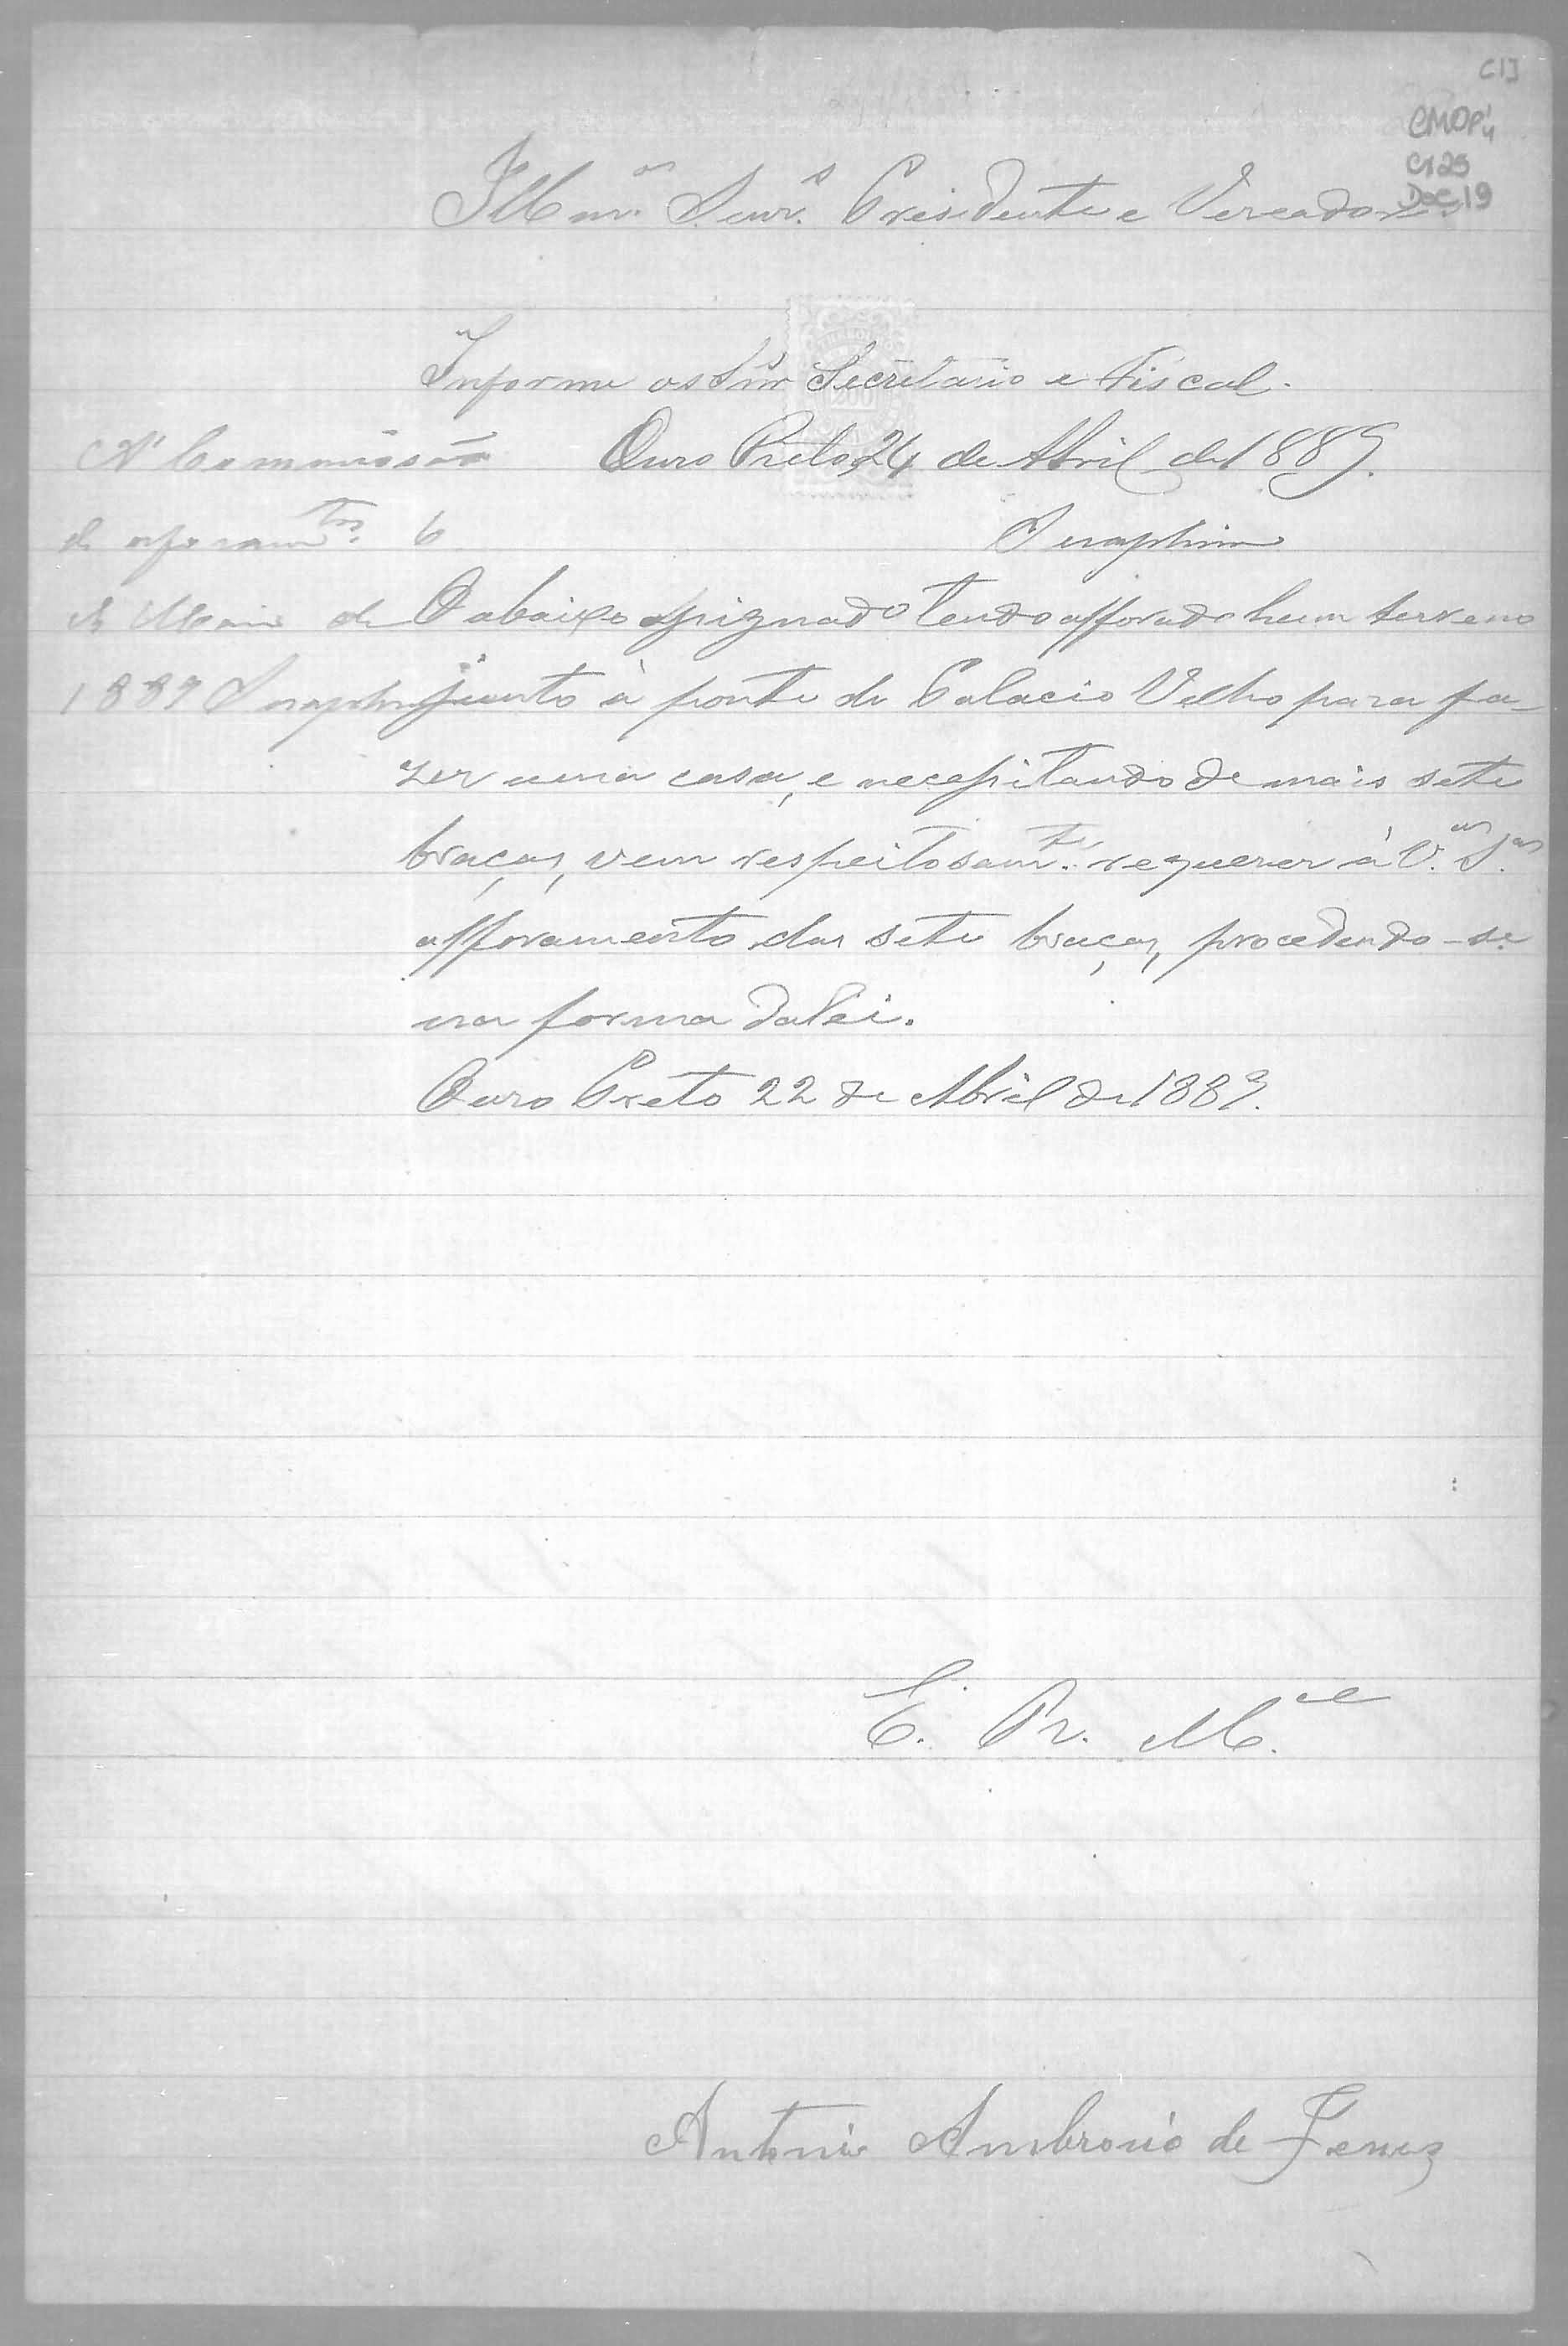 C1J
CMOP 4
Cx25
Doc 19
Illmos. Senrs. Presidente e Vereadores.
Informe os Snrs Secretario e Fiscal.
Ouro Preto, 24 de Abril de 1889.
Seraphim
A' Commissão
de aforamtos. 6
de Maio de
1889 Seraphim
O abaixo assignado tendo afforado hum terreno
junto à ponte do Palacio Velho para fa-
zer uma casa, e necessitando de mais sete
braças, vem respeitosamte. requerer à V.as S.as
afforamento das sete braças, procedendo-se
na forma da lei.
Ouro Preto 22 de Abril de 1889.
E. R. Mce
Antonio Ambrosio de